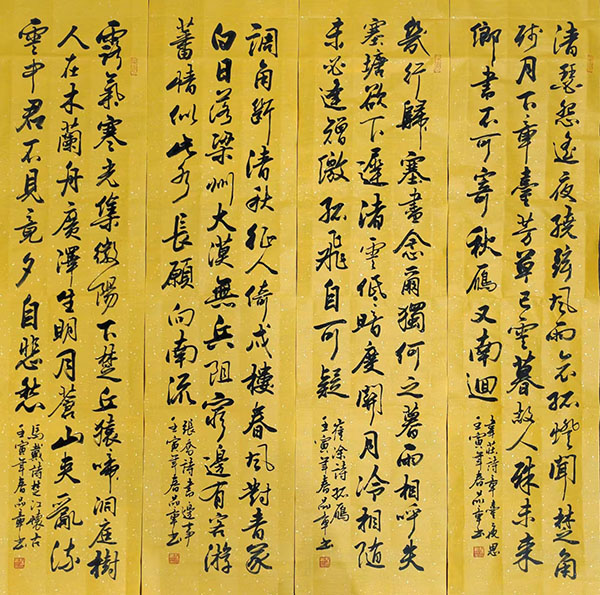 清瑟怨遙夜繞弦風雨哀孤燈聞楚角
残月下章臺芳草已雲暮故人殊未来
鄉書不可寄秋雁又南迴
韋莊詩章臺夜思
壬寅年春品章书
幾行歸塞盡念爾獨何之暮雨相呼失
寒塘欲下遲渚雲低暗度關月冷相隨
未必逢矰缴孤飛自可疑
崔涂詩孤雁
壬寅年春品章书
調角斷清秋征人倚戍樓春風對青冢
白日落梁州大漠無兵阻窮邊有客游
蕃情似此水長願向南流
張喬詩書邊事
壬寅年春品章书
露氣寒光集微陽下楚丘猿啼洞庭樹
人在木蘭舟廣澤生明月蒼山夹亂流
雲中君不見竟夕自悲愁
馬戴詩楚江懷古
壬寅年春品章书